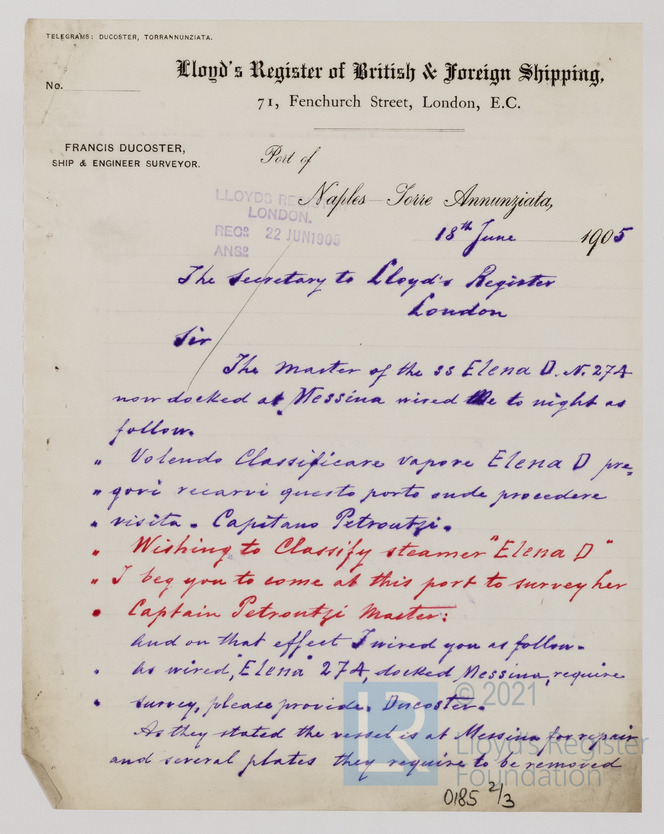 TELEGRAMS: DUCOSTER, TORRANNUNZIATA.
Lloyd's Register of British & Foreign Shipping,
No.
71, Fenchurch Street, London, E.C.
FRANCIS DUCOSTER,
SHIP & ENGINEER SURVEYOR.
Port of
Naples - Torre Annunziata,
LLOYDS REG
LONDON.
RECD 22 JUN 1905
ANSD
18th June 1905
The Secretary to Lloyd's Register
London
Sir
The Master of the SS Elena D. N. 274
now docked at Messina wired me to night as
follow.
" Volendo Classificare vapore Elena D pre=
" govi recarvi questo porto onde procedere
" visita. Capitano Petroutzi.
" Wishing to Classify steamer "Elena D"
" I beg you to come at this port to survey her
" Captain Petroutzi Master:
and on that effect I wired you as follow.
" As wired, "Elena" 274, docked Messina, require
" survey, please provide. Ducoster.
As they stated the vessel is at Messina for repair
and several plates they require to be removed
LR
© 2021
Lloyd's Register
Foundation
0185 2/3